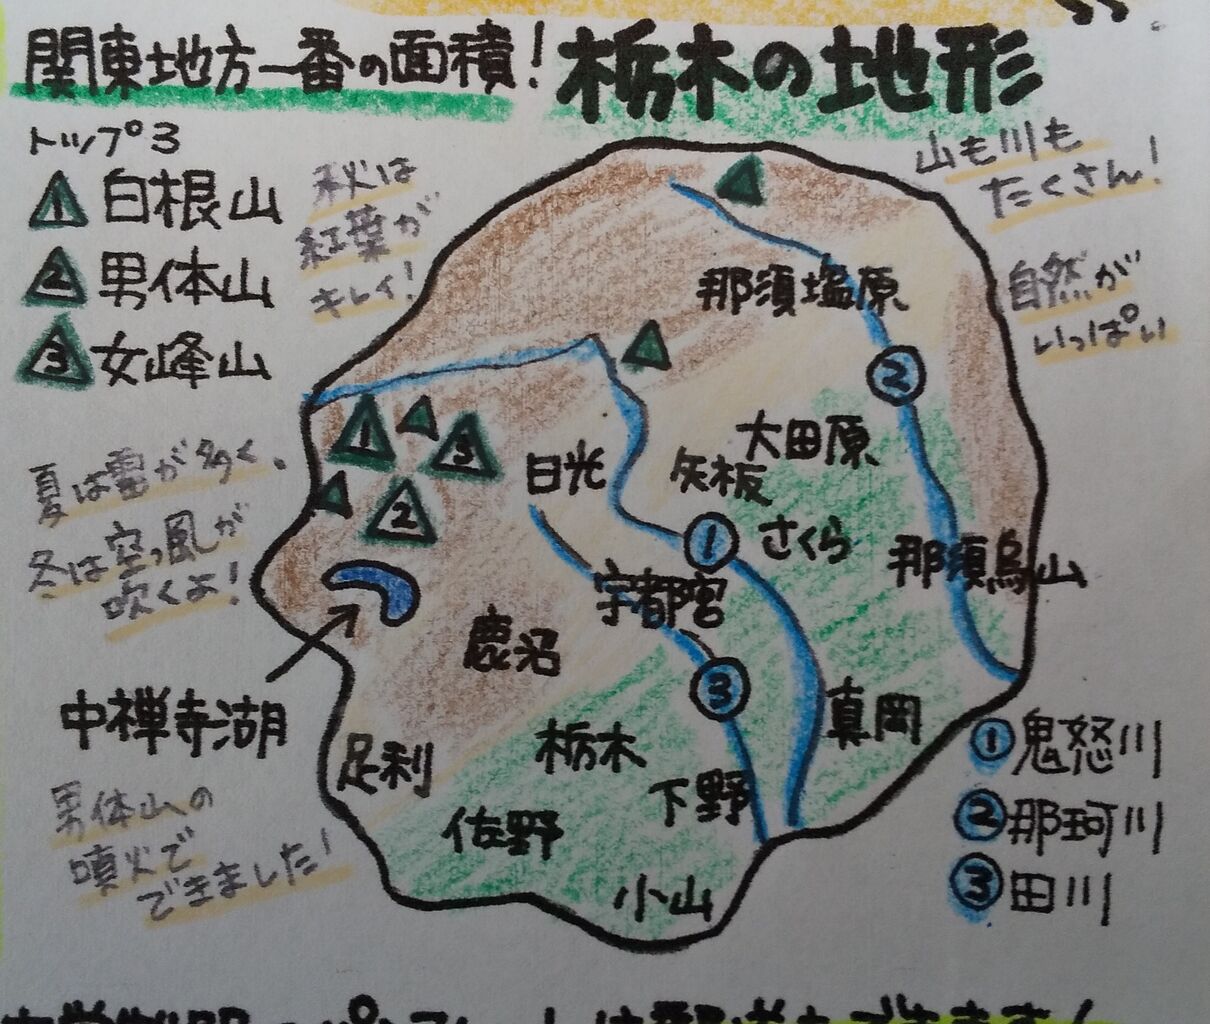 関東地方一番の面積!
栃木の地形
トップ3
1 白根山
2 男体山
3 女峰山
秋は
紅葉が
キレイ!
山も川も
たくさん!
自然が
いっぱい
夏は雷が多く、
冬は空っ風が
吹くよ!
那須塩原
2
大田原
矢板
日光
1
3
2
1
さくら
那須烏山
宇都宮
鹿沼
3
真岡
中禅寺湖
足利
栃木
下野
佐野
小山
男体山の
噴火で
できました!
①鬼怒川
②那珂川
③田川